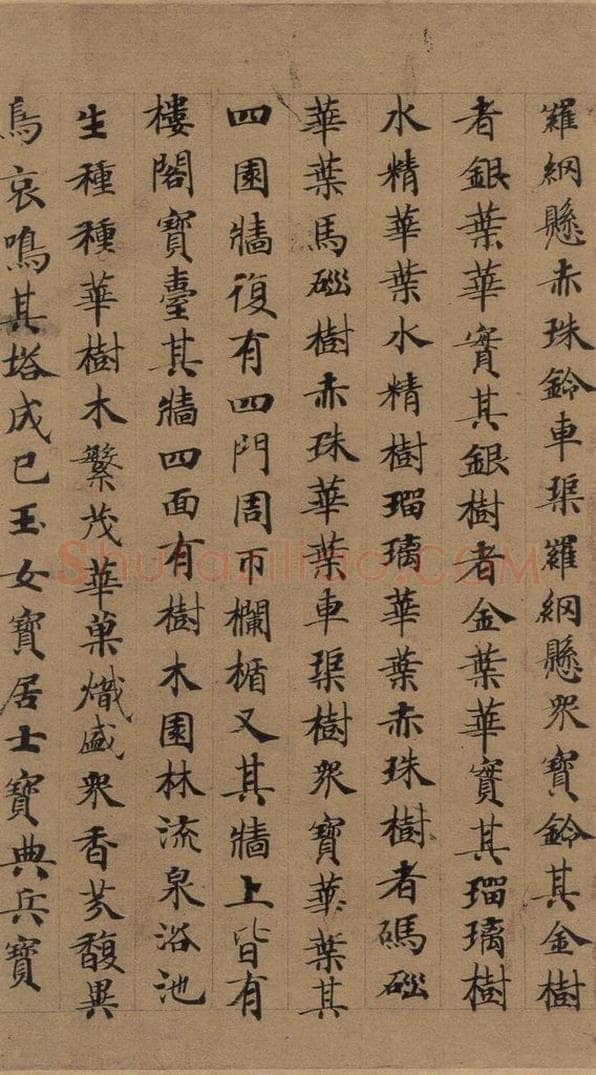 羅網懸赤珠鈴車渠羅網懸衆寶鈴其金樹
者銀葉華實其銀樹者金葉華實其瑠璃樹
水精華葉水精樹瑠璃華葉赤珠樹者碼碯
華葉馬碯樹赤珠華葉車渠樹衆寶華葉其
四園牆復有四門周帀欄楯又其牆上皆有
樓閣寶臺其牆四面有樹木園林流泉浴池
生種種華樹木繁茂華菓熾盛衆香芬馥異
鳥哀鳴其塔成已玉女寶居士寶典兵寶